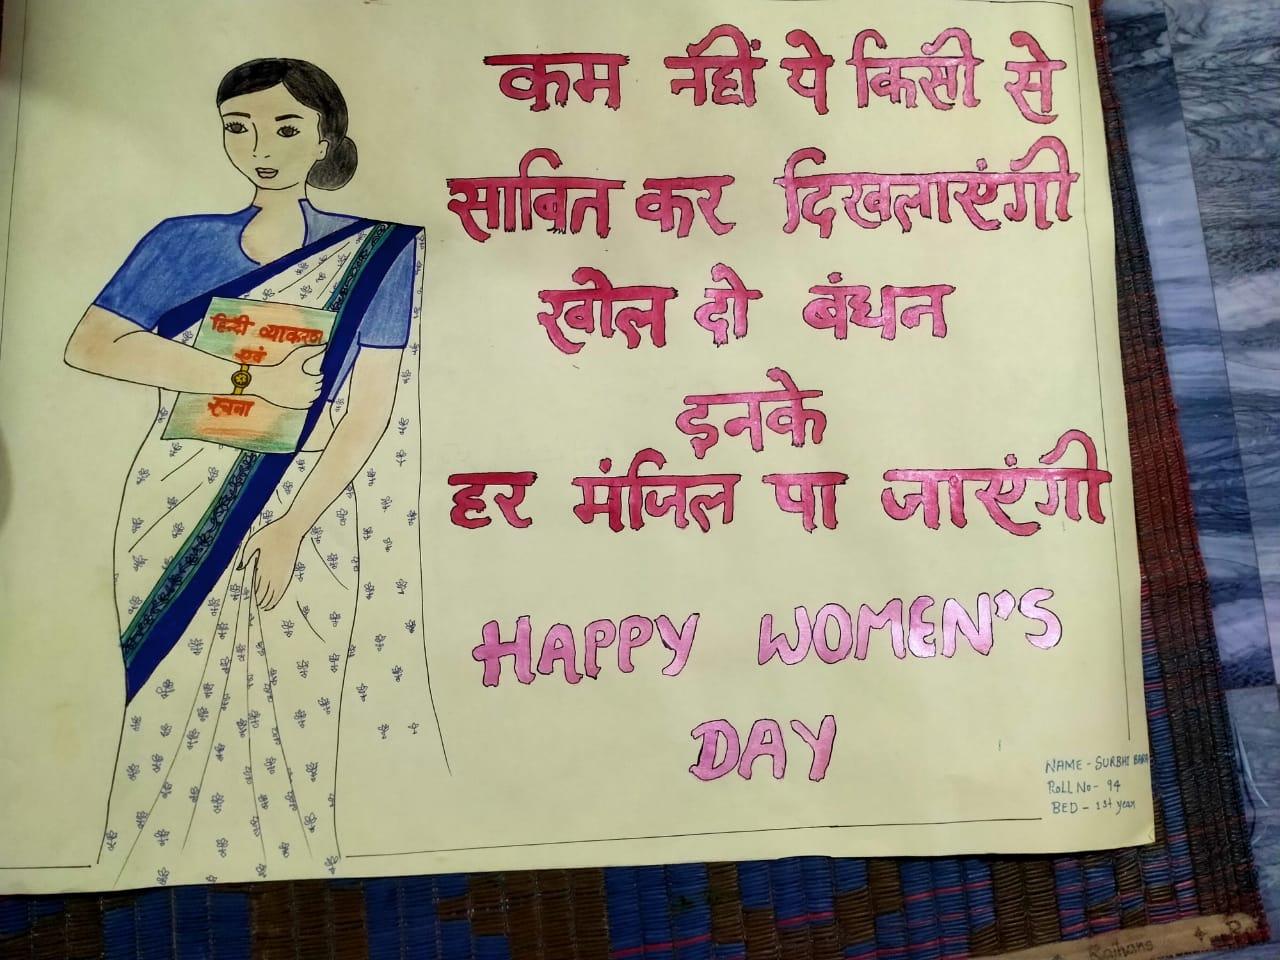 कम नहीं ये किसी से
साबित कर दिखलाएंगी
खोल दो बंधन
इनके
हर मंजिल पा जाएंगी
HAPPY WOMEN'S
DAY
हिन्दी व्याकरण
एवं
रचना
NAME - SURBHI BARA
Roll No - 94
BED - 1st year
Rajhans